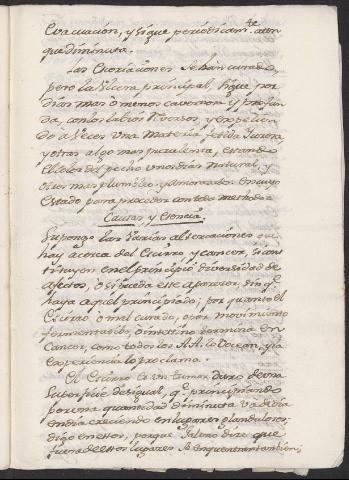 evacuación, y sigue periodicam.te aun
que diminuta.
Las Excoriaciones se han curado,
pero la Ulcera principal, sigue por
dias mas o menos cavernosa y profun
da, con los labios inversos, y expelien
do a veces una materia fetida
y otras algo mas purulenta, estando
el color del pecho unos dias natural, y
otros mas plumbeo y amoratado: en cuyo
estado para proceder con todo methodo =
Causas, y esencia.
Supongo las varias altercaciones que
hay acerca del Escirro, y cancer, si cons
tituyen en el principio diversidad de
afectos, o si pueda este aparecer, sin q.e
haya aquel principiado; por quanto el
Escirro, o mal curado, o por movimiento
fermentativo, o intestino termina en
Cancer, como todos los A.A. lo vocean, y la
experiencia lo proclama.
El Escirro es un tumor duro de una
superficie desigual, q.e principiando
por una quantidad diminuta va de dia
en dia creciendo en lugares glandulosos;
digo en estos, porque Galeno dice que
fuera de estos lugares se enquentran tambien;